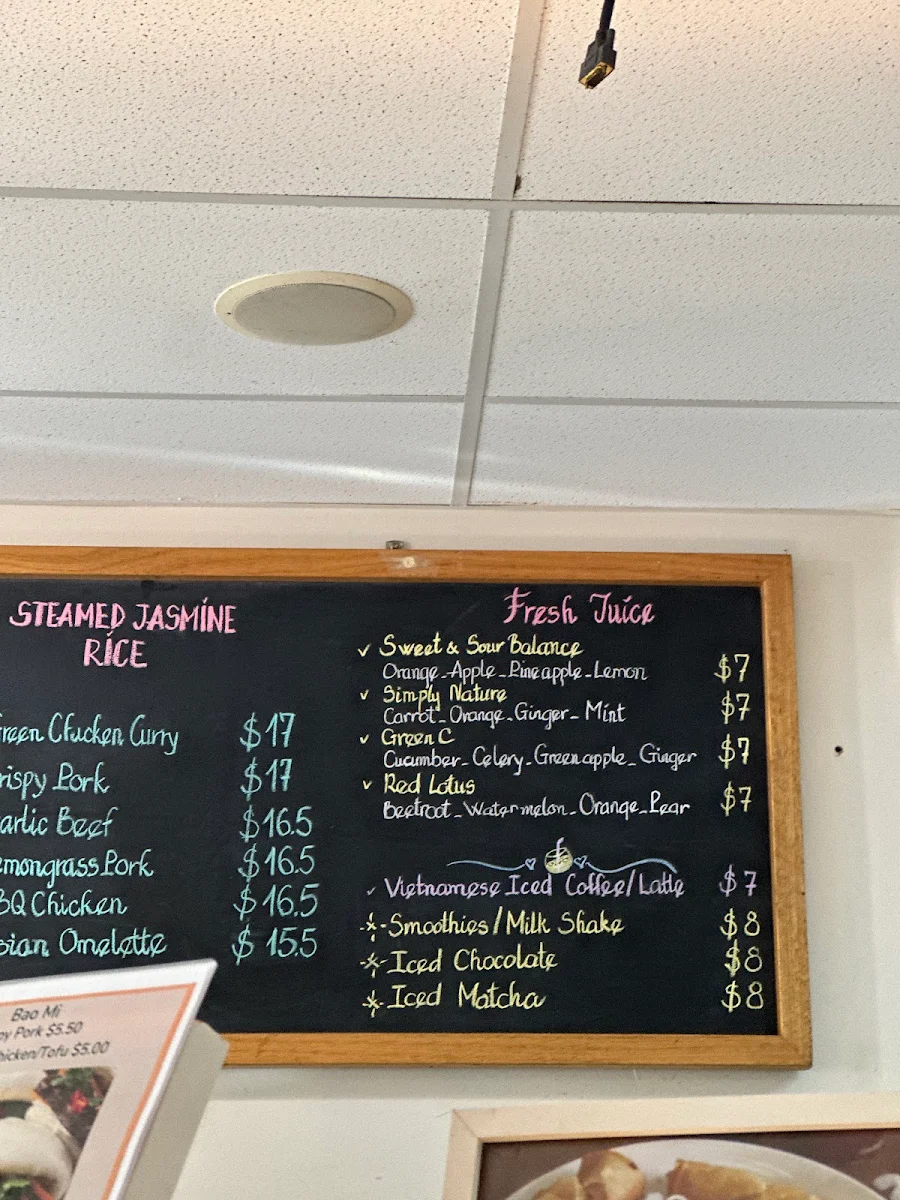 STEAMED JASMINE
RICE
reen Chicken Curry $17
rispy Pork $17
arlic Beef $16.5
emongrass Pork $16.5
BQ Chicken $16.5
sian Omelette $15.5
Fresh Juice
Sweet & Sour Balance
Orange - Apple - Pineapple - Lemon $7
Simply Nature
Carrot - Orange - Ginger - Mint $7
Green C
Cucumber - Celery - Green apple - Ginger $7
Red Lotus
Beetroot - Watermelon - Orange - Pear $7
Vietnamese Iced Coffee/Latte $7
Smoothies/Milk Shake $8
Iced Chocolate $8
Iced Matcha $8
Bao Mi
py Pork $5.50
hicken/Tofu $5.00